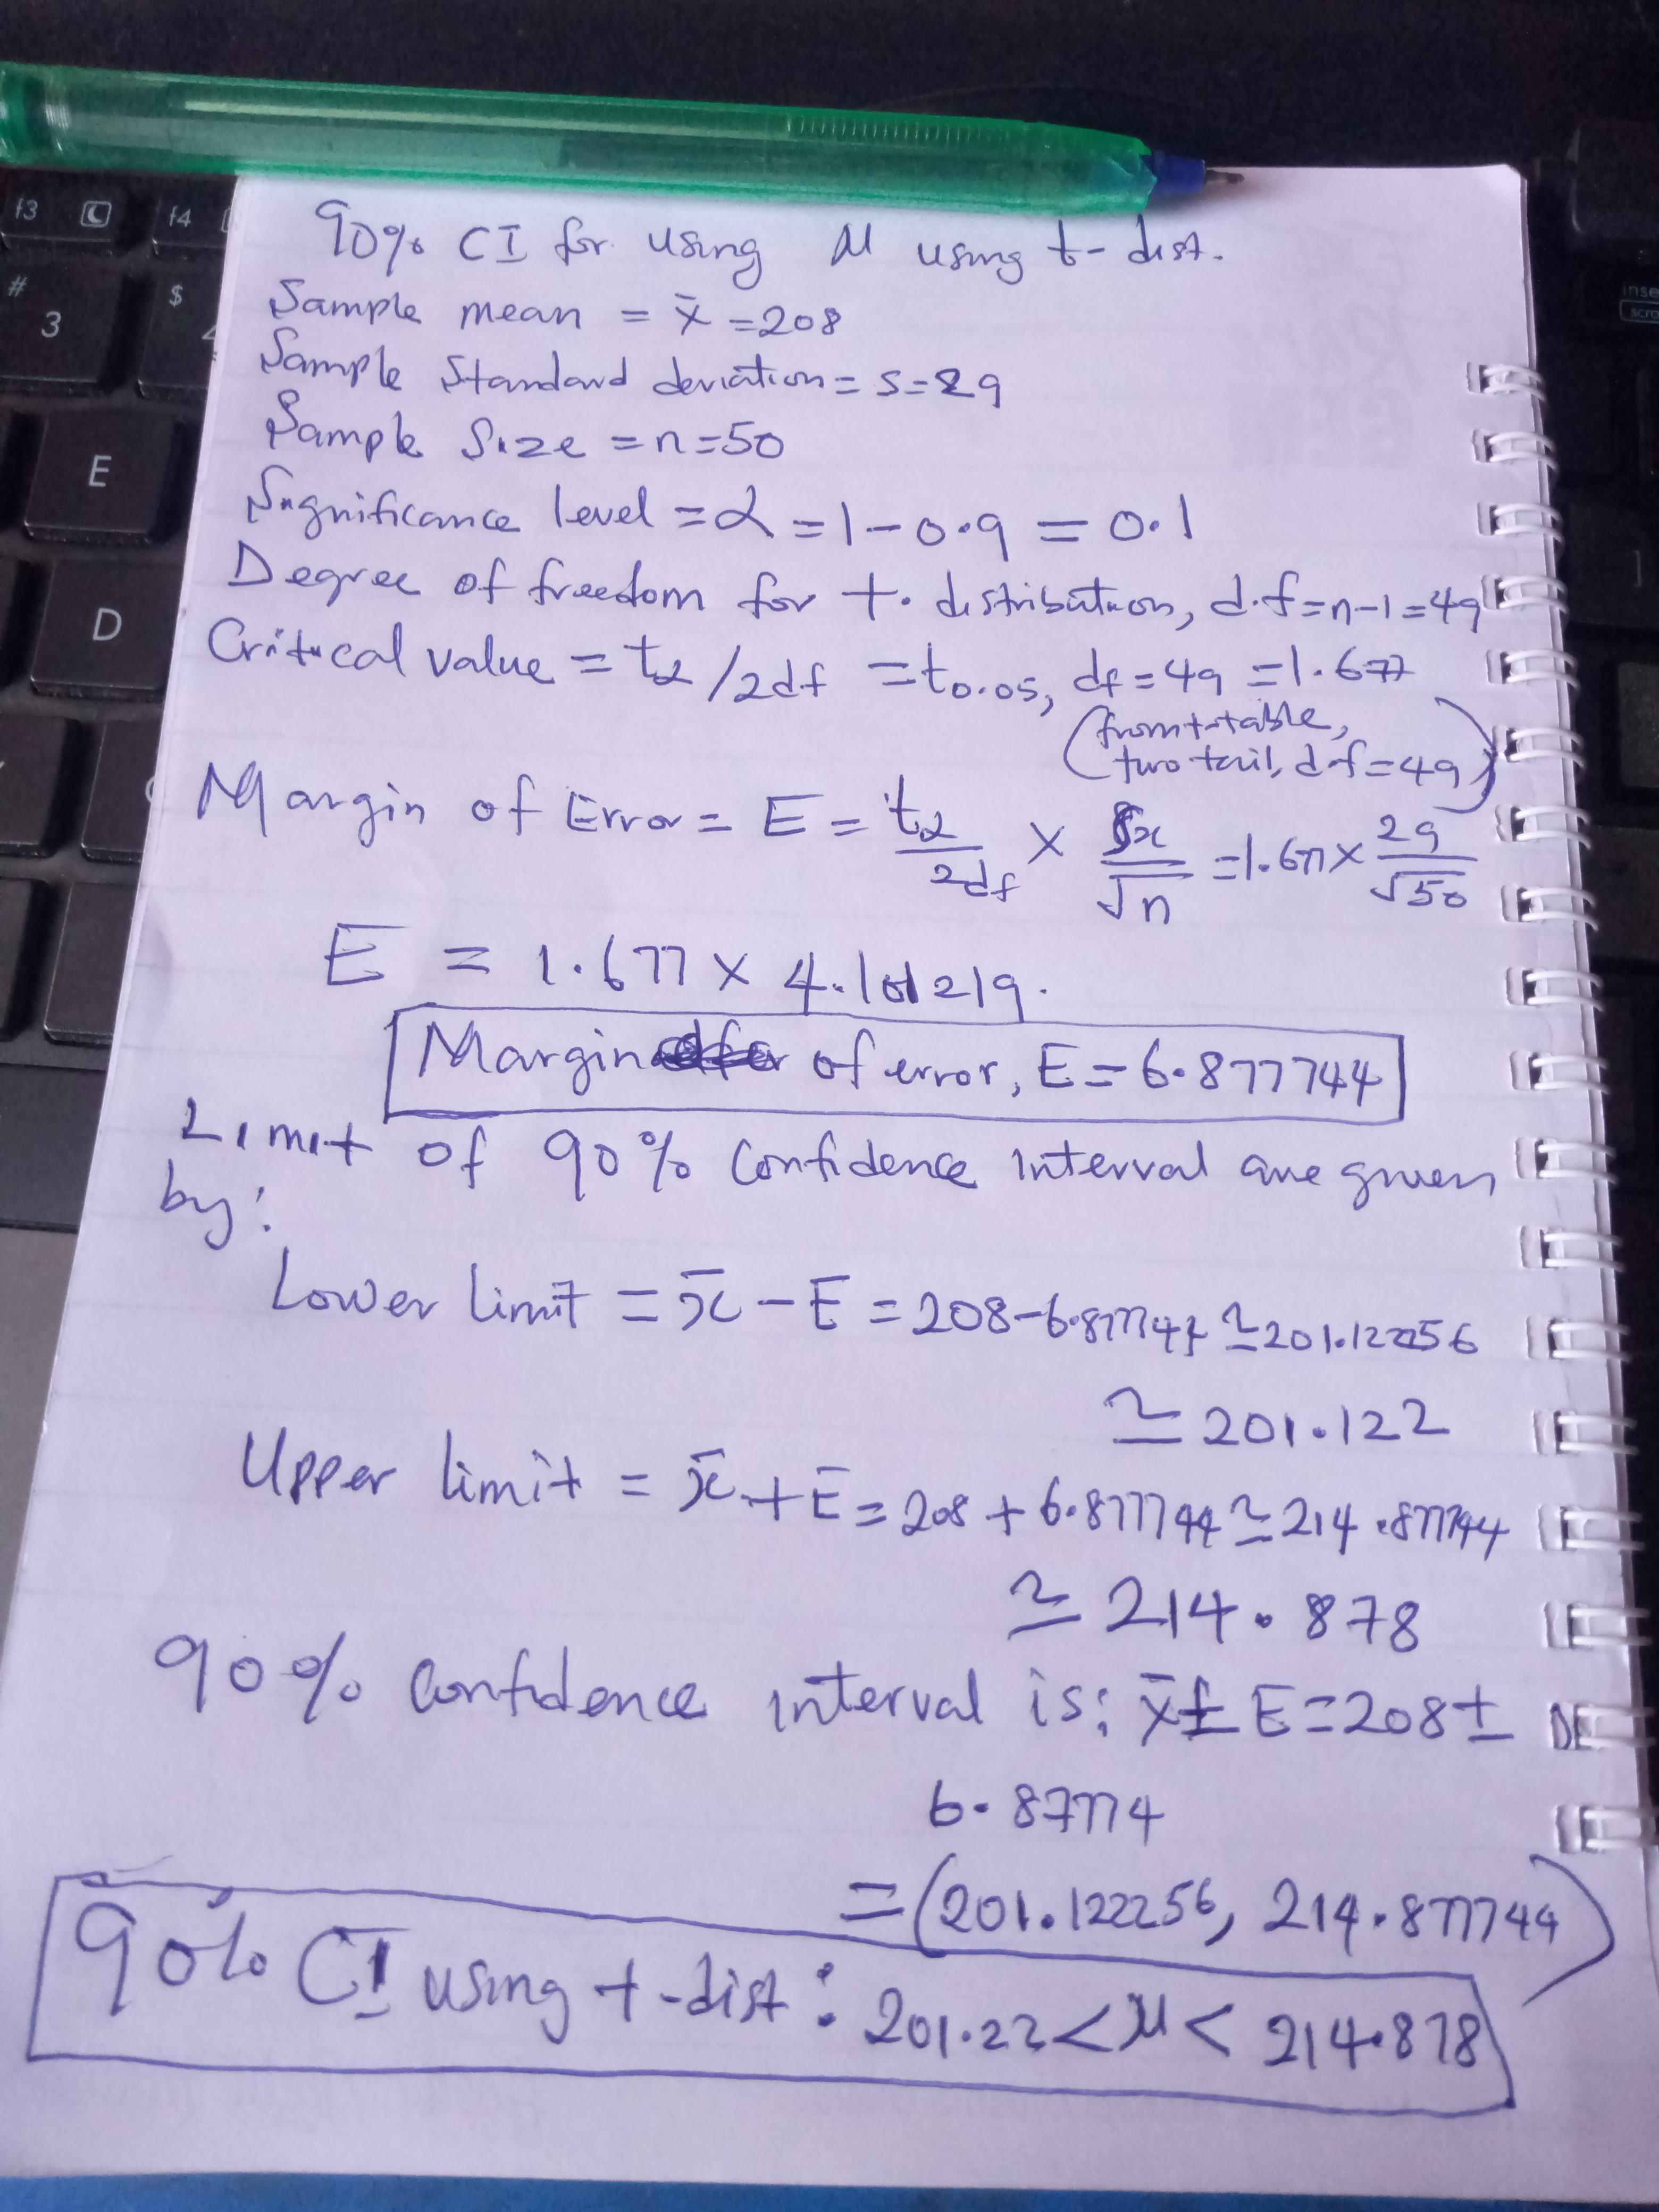 f3
f4
#
3
$
E
D
inse
scro
]
90% CI for using μ using t-dist.
Sample mean = x̄ = 208
Sample Standard deviation = s = 29
Sample Size = n = 50
Significance level = α = 1 - 0.9 = 0.1
Degree of freedom for t. distribution, d.f = n-1 = 49
Critical value = tα/2df = t0.05, df = 49 = 1.677
(from t-table,
two tail, d.f = 49)
Margin of Error = E = tα/2df × sx/√n = 1.677 × 29/√50
E = 1.677 × 4.101219.
Margin of error, E = 6.877744
Limit of 90% Confidence Interval are given
by:
Lower limit = x̄ - E = 208 - 6.877744 ≃ 201.122256
≃ 201.122
Upper limit = x̄ + E = 208 + 6.877744 ≃ 214.877744
≃ 214.878
90% Confidence interval is: x̄ ± E = 208 ±
6.87774
= (201.122256, 214.877744)
90% CI using t-dist: 201.22 < μ < 214.878